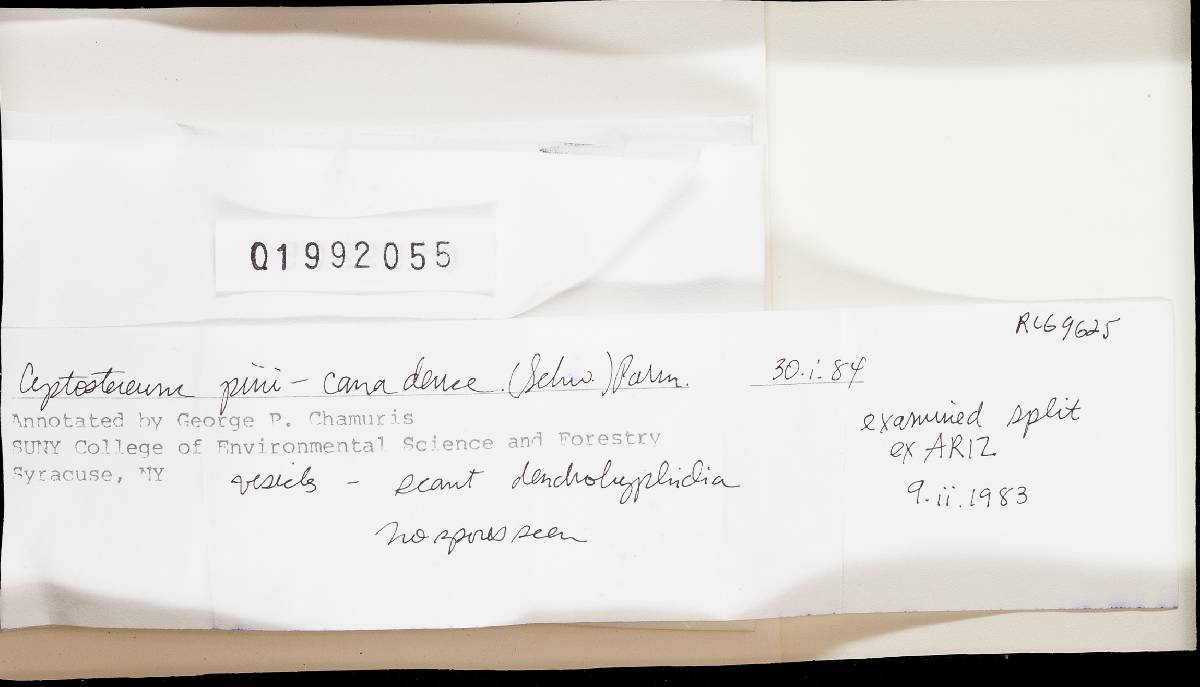 01992055
RLG 9625
Cystostereum pini-canadense (Schw.) Parm. 30.i.84
Annotated by George P. Chamuris
SUNY College of Environmental Science and Forestry
Syracuse, NY
vesicles - scant dendrohyphidia
no spores seen
examined split
ex ARIZ
9.ii.1983